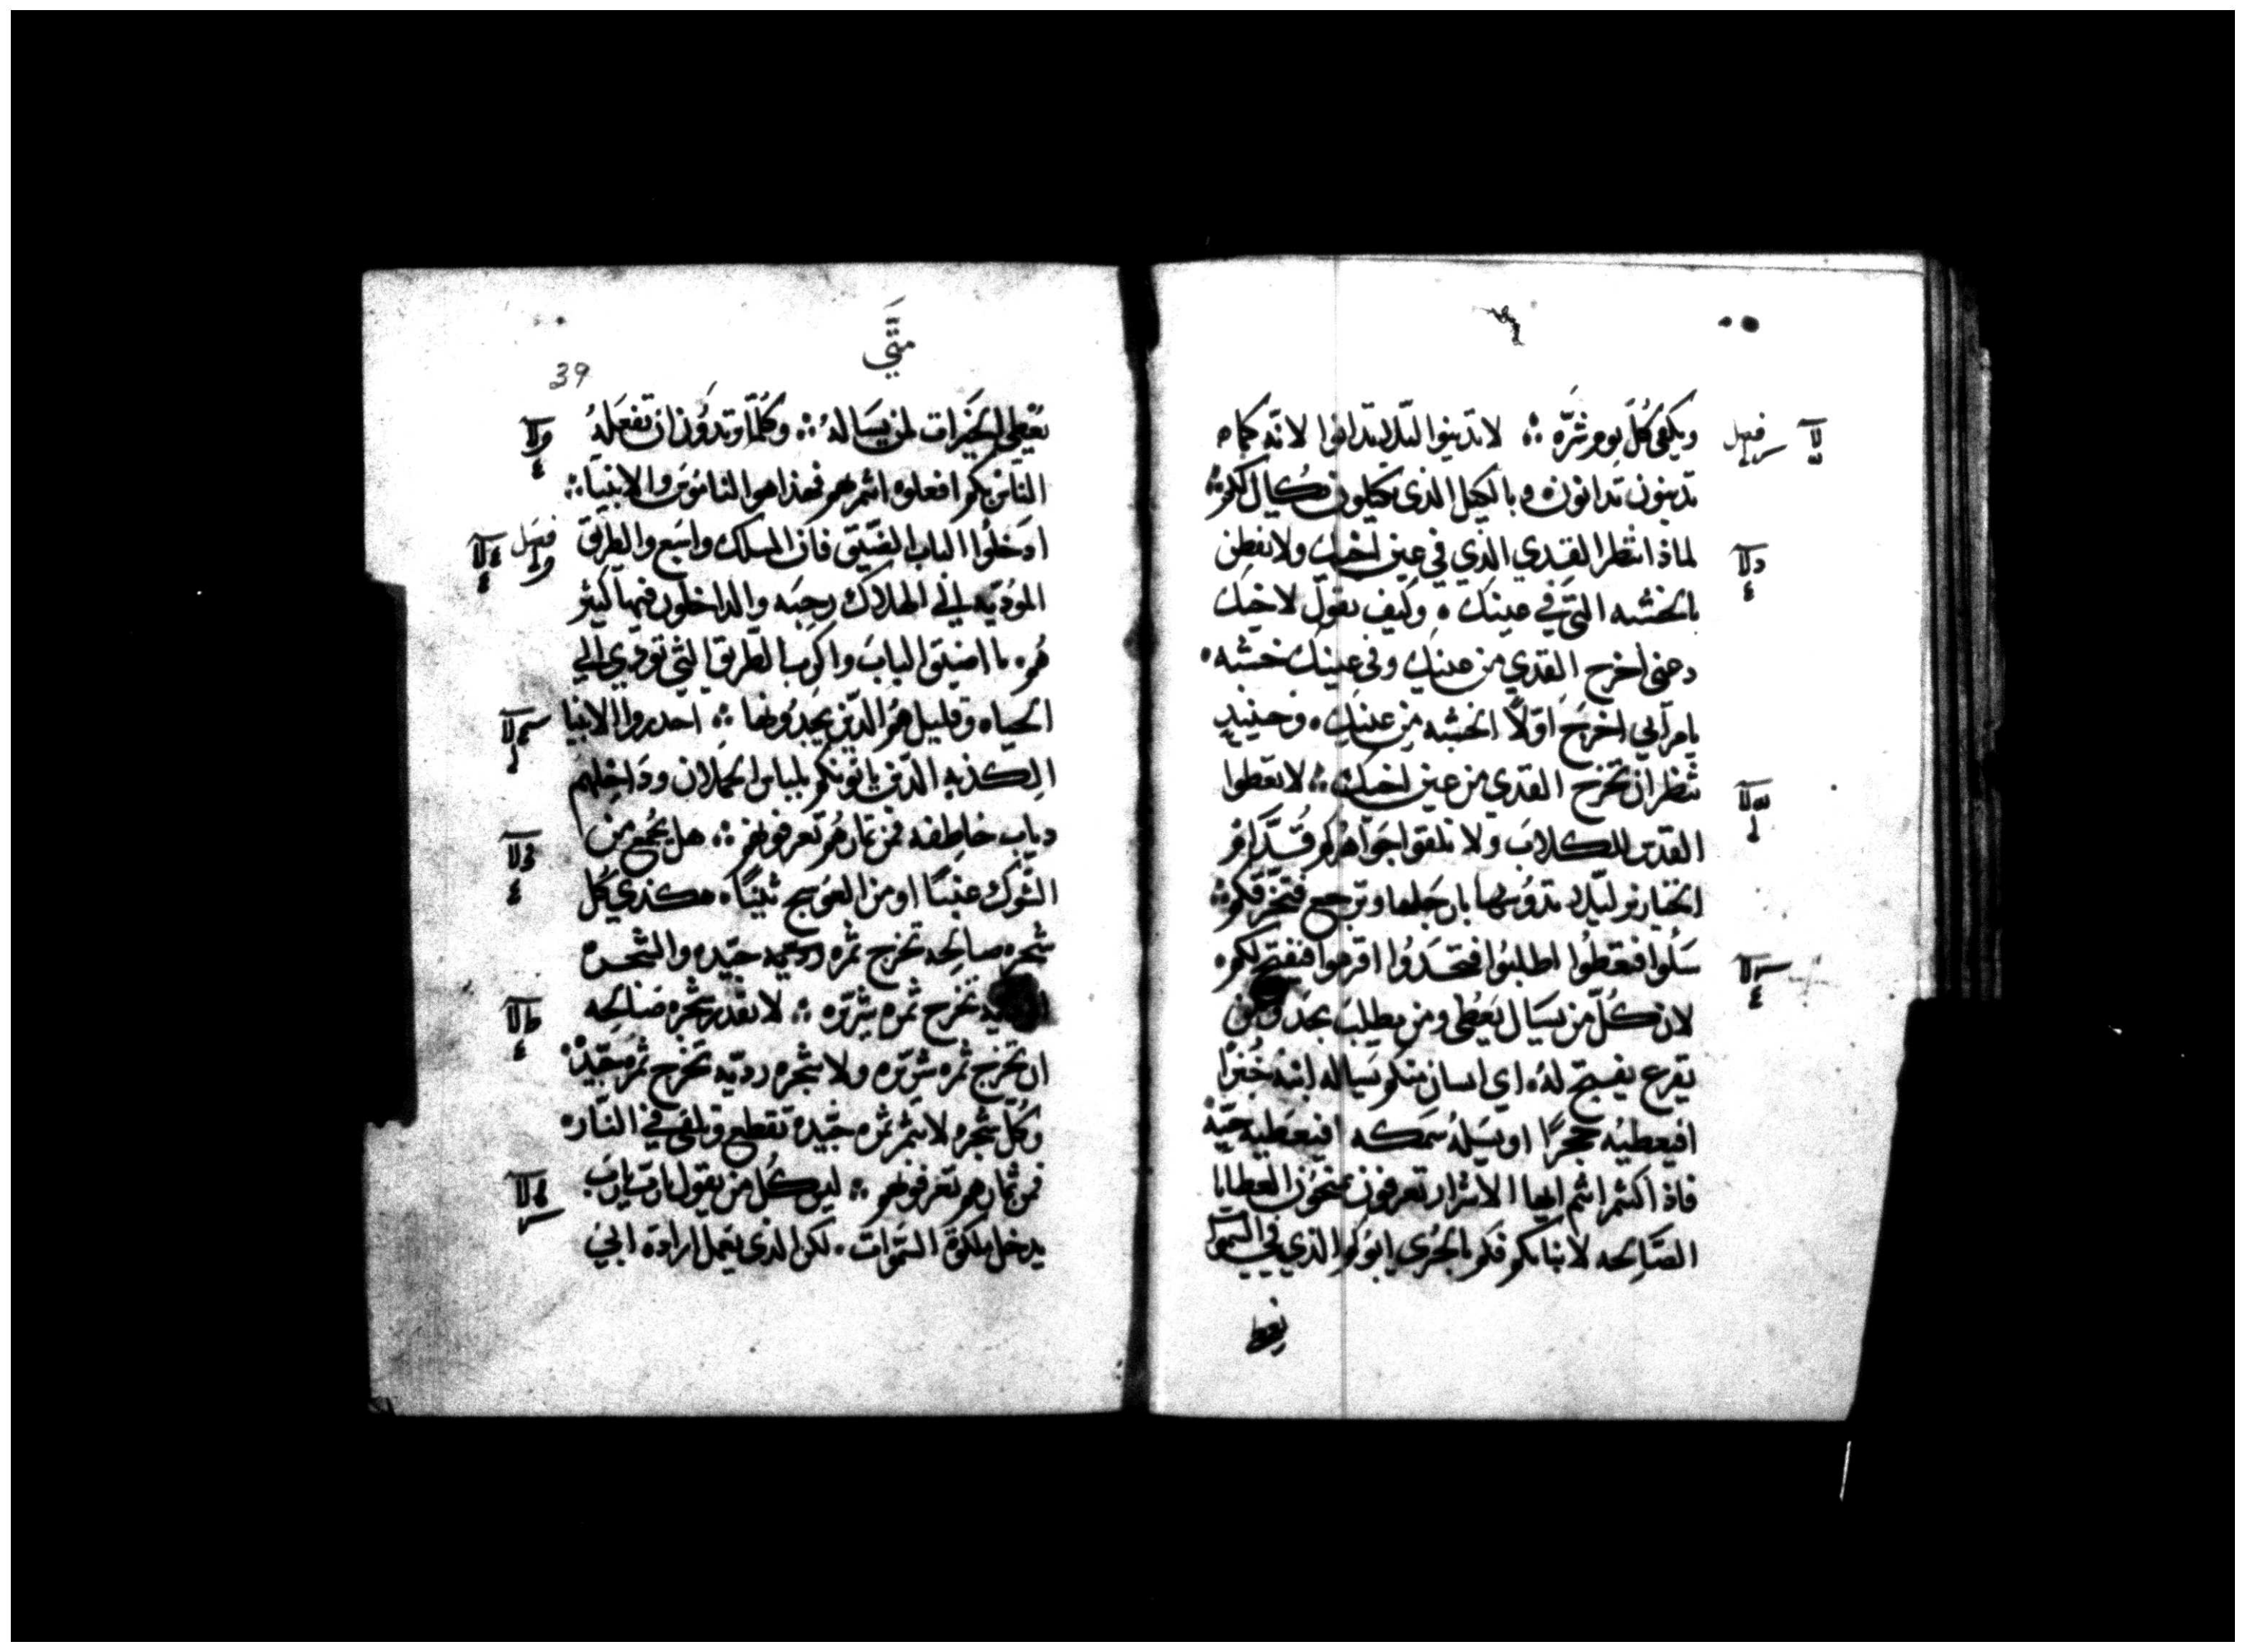 ويكفي كُلَ يوم شَرّه ؞ لا تدينوا ليلا تدانوا لانه كماه
تدينون تدانون ه وبالكيل الذي تكيلون يكال لكم؞
لماذا تنظر القدي الذي في عين اخيك ولا تفطن
بالخشبه التي في عينك ه وكيف تقول لاخيك
دعني اخرج القدي من عينك وفي عينك خشبه ه
يا مرآيي اخرج اوّلاً الخشبه من عينك ه وحينيدٍ
تنظر ان تخرج القدي من عين اخيك ؞ لا تعطوا
القدس للكلاب ولا تلقوا جواهركم قُدّام
الخنازير ليلا تدوسها بارجلها وترجع فتخزقكم؞
سَلُوا فتعَطُوا اطلبُوا فتجَدُوا اقرعوا فيفتح لكم ه
لان كُلّ من يسَال يَعُطى ومن يطلب يجد ومن
يقرع يفتح لهُ ه اي انسان منكم يَساله ابنه خُبزًا
افيعطيه حجرًا او يسَلهُ سَمكه افيعطيه حيّه
فاذ اكنتم انتم ايها الاشرار تعرفون تمنحُون العطايا
الصَالحه لابنايكم فكم بالحُرى ابُوكم الذي في السموا
يعط
فصل
متَّي
39
يُعُطي الخَيرات لمن يسَاله ؞ وكُلمّا تريدُون ان تفعَلهُ
النَاسْ بكم افعلوه انتم بهم فهذا هو الناموس والانبيَا؞
ادخلُوا الباب الضيّق فان المسلك واسَع والطريق
الموُديّه الي الهلاك رحبَه والداخلون فيها كثير
هُم ه ما اضيَق البابَ واكرب الطريق التي تودي الي
الحياه وقليل همُ الذّين يجدُونها ؞ احدروا الانبيا
الكذبه الذّين ياتونكم بلباس الحملان وداخلهم
دياب خاطفه من ثمارهُم تعرفونهم ؞ هل يُجمع من
الشّوك عنبًا او من العَوسج تينًا ه هكذي كُل
شجره صالحه تخرج ثمره جيّده والشجره
تخرج ثمره شِريّره ؞ لا تقدر شجره صَالحه
ان تخرج ثمره شرّيره ولا شجره رديّه تخرج ثمره جيّدة؞
وكُل شجره لا تثمر ثمره جيّدة تقطع وتلقي في النَار ه
فمن ثمارهم تعرفونهم ؞ ليس كُل من يقول يارب يارب
يدخل ملكوة السَموات ه لكن الذي يعمل ارادة ابيَ
فصل